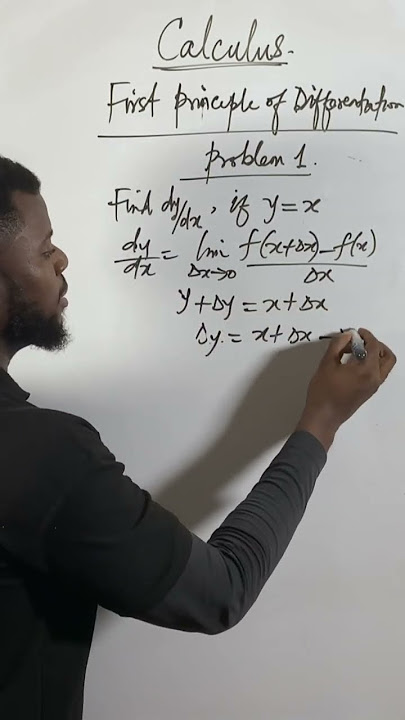 Calculus.
First principle of Differentiation
Problem 1.
Find dy/dx, if y = x
dy/dx = lim Δx→0 f(x+Δx) - f(x) / Δx
y + Δy = x + Δx
Δy = x + Δx -